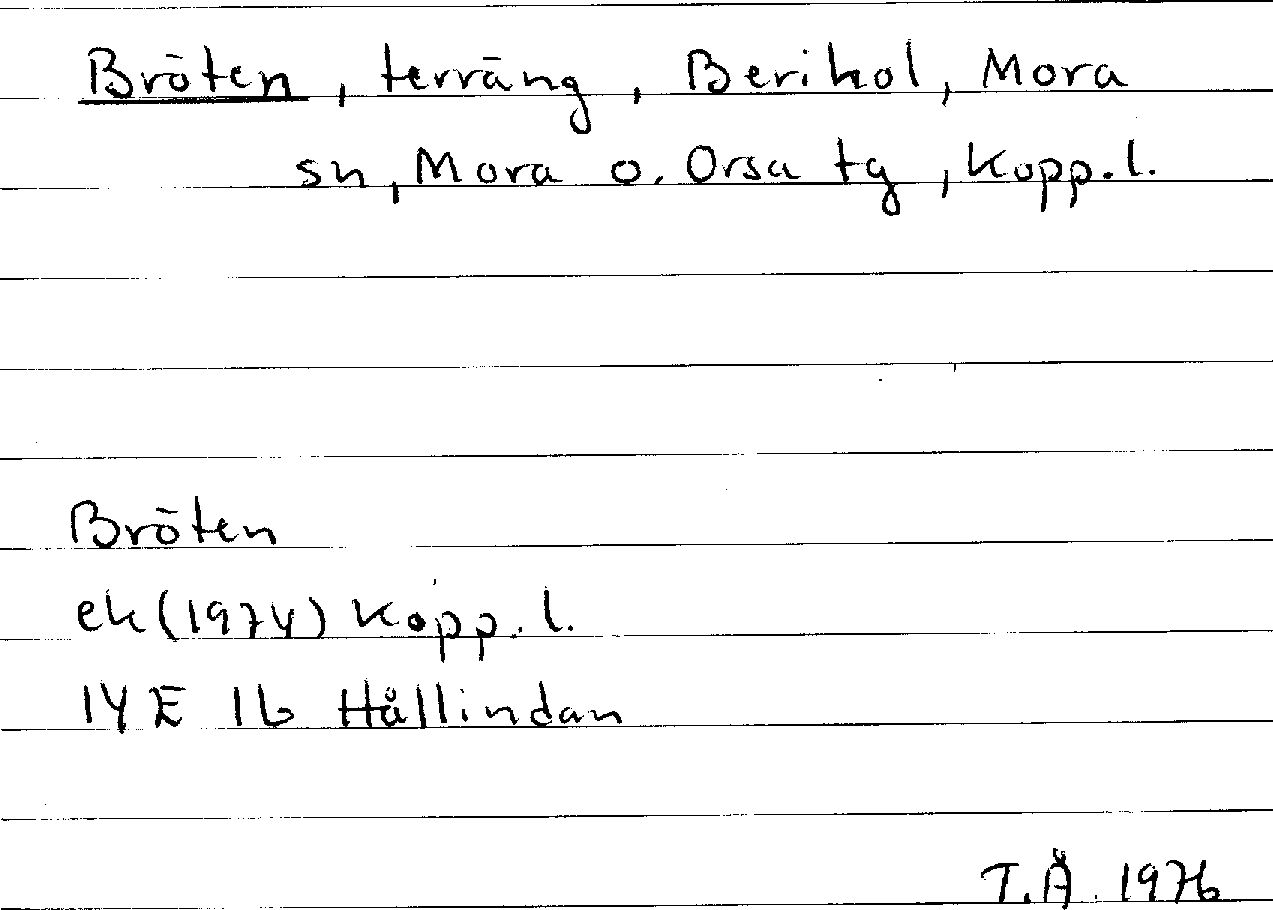 Bröten, terräng, Berikol, Mora
sn, Mora o. Orsa tg, Kopp.l.
Bröten
ek (1974) Kopp.l.
14E 1b Hållindan
T.Ä. 1976